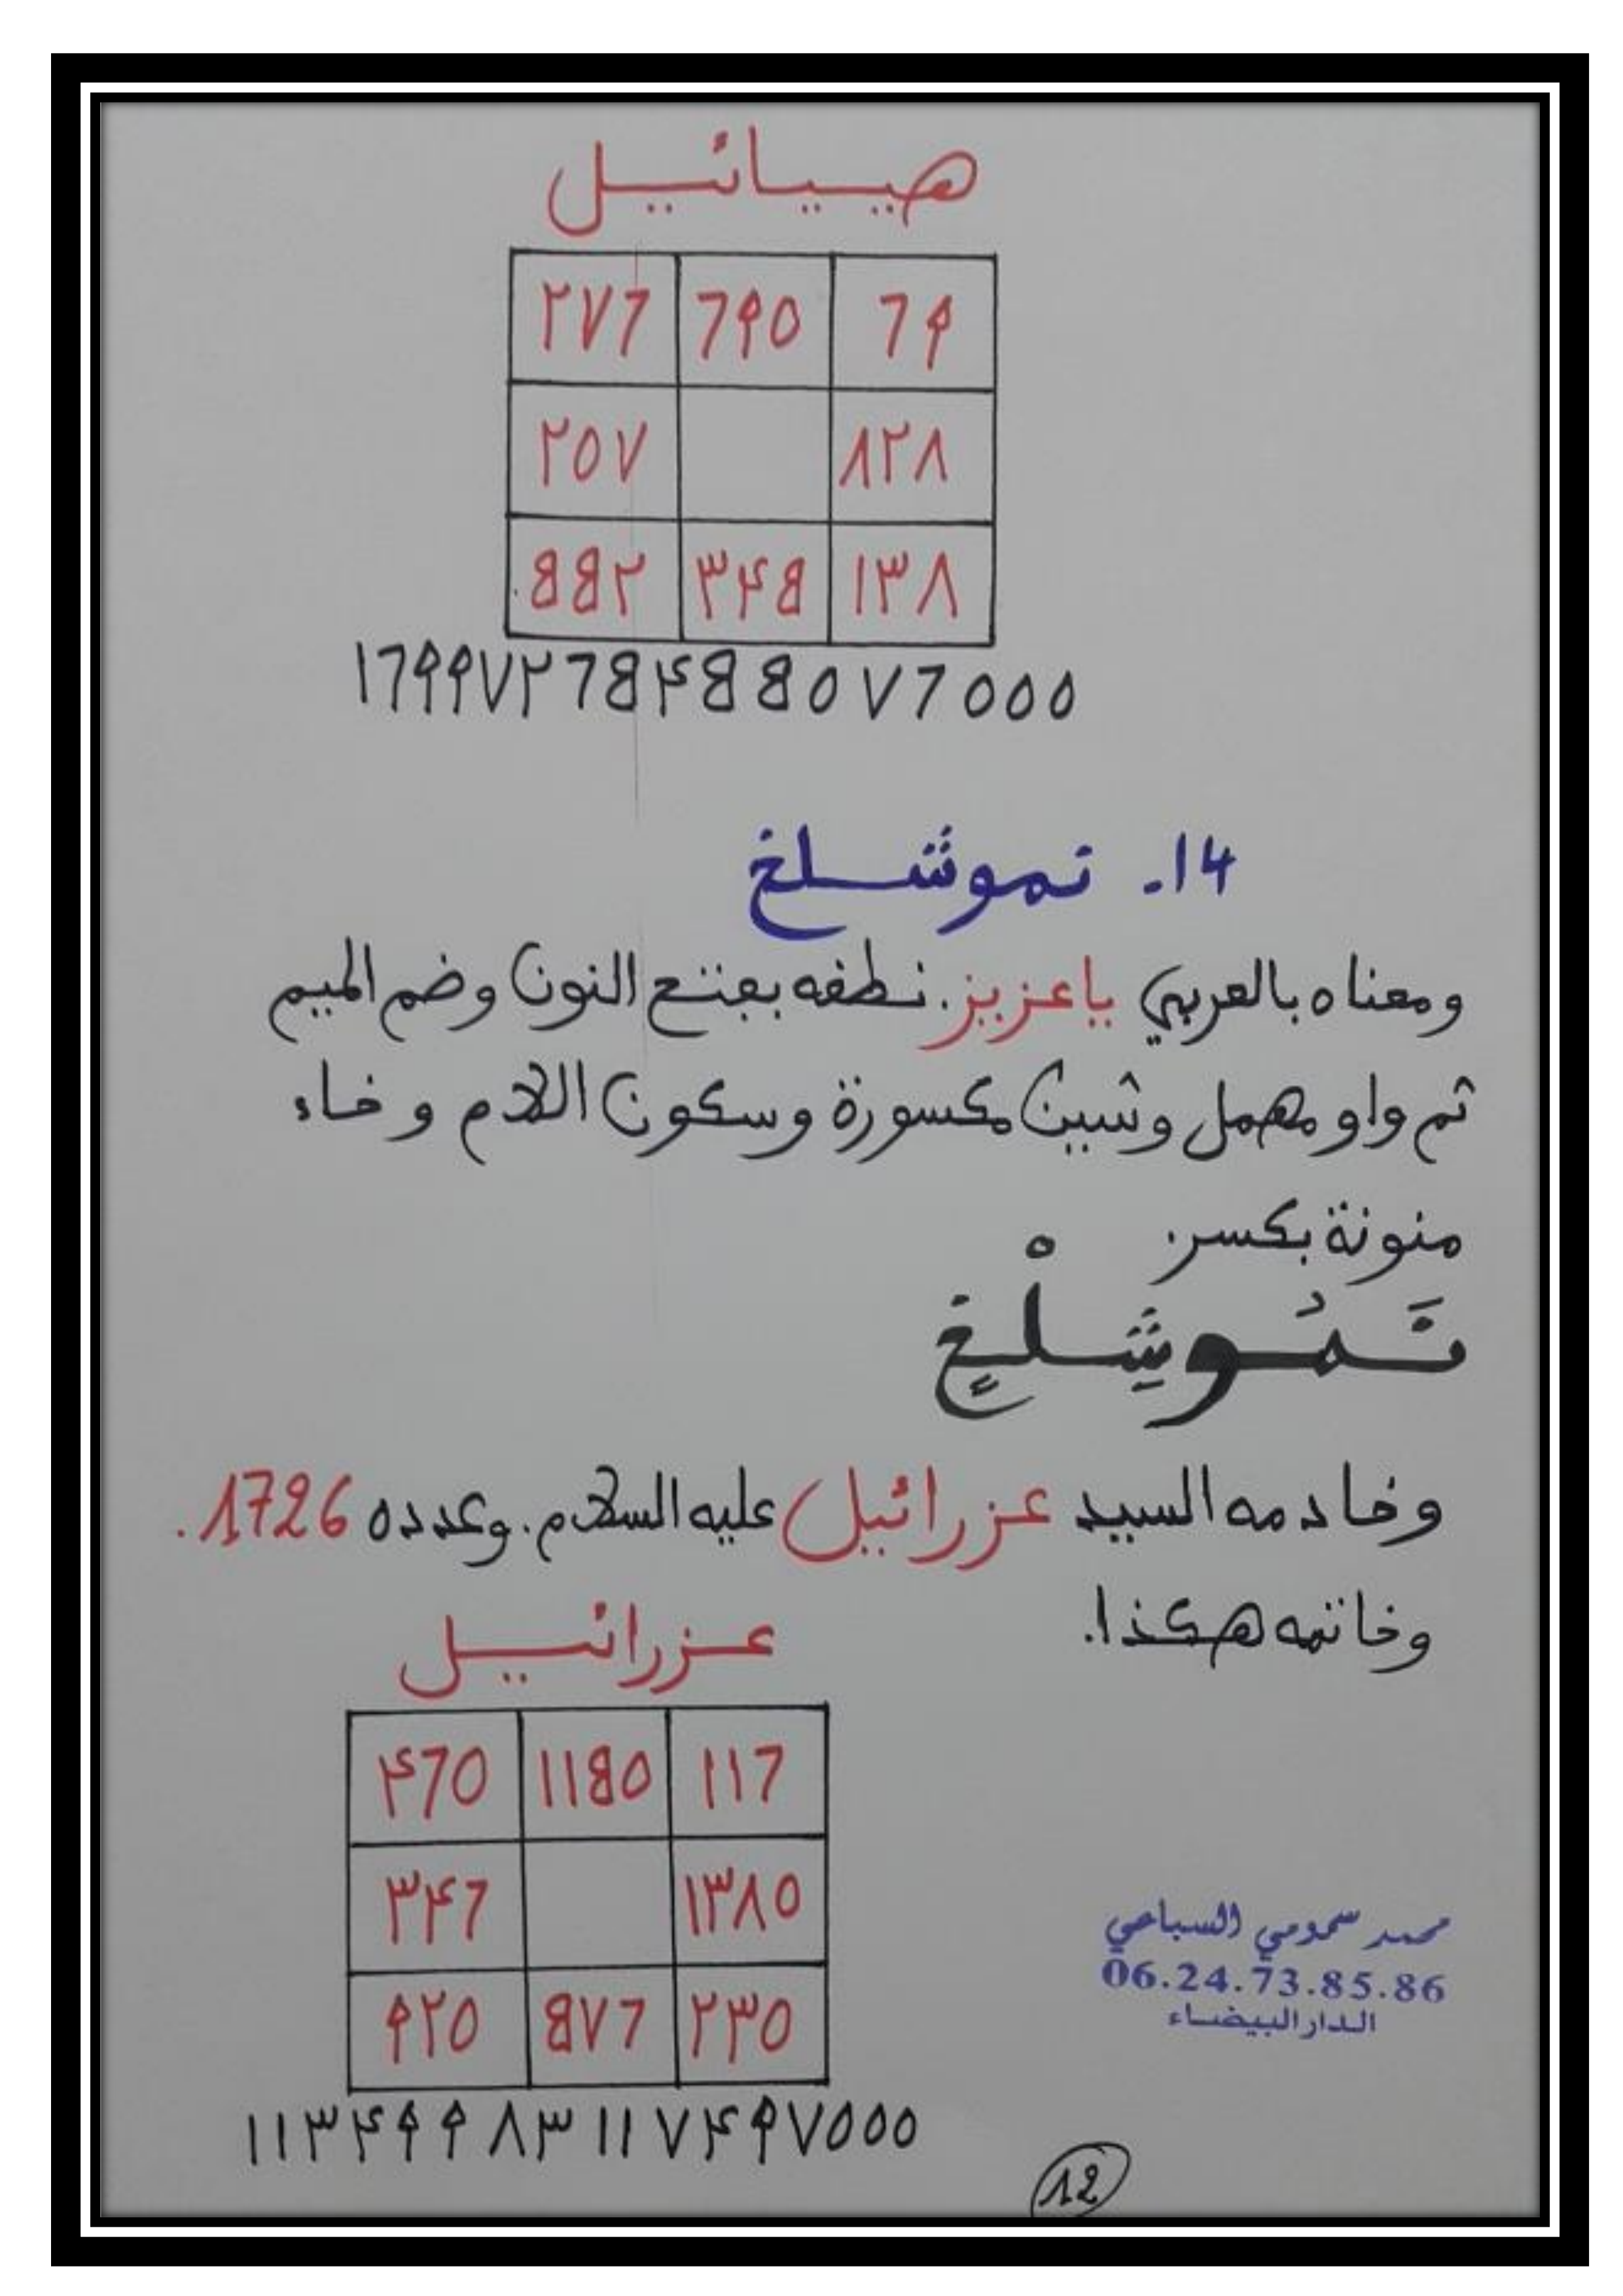 هيـيـائيـل
٢٧٦ ٦٩٠ ٦٩
٢٠٧ ٨٢٨
٥٥٢ ٣٤٥ ١٣٨
١٦٩٩٧٢٦٥٤٥٥٠٧٦٠٠٠
14. نموشلخ
ومعناه بالعربي ياعزيز. نطقه بفتح النون وضم الميم
ثم واو مهمل وشين مكسورة وسكون اللام وخاء
منونة بكسر.
نَمُوشِلْخٍ
وخادمه السيد عزرائيل عليه السلام. وعدده 1726.
وخاتمه هكذا.
عزرائيل
٤٦٠ ١١٥٠ ١١٦
٣٤٦ ١٣٨٠
٩٢٠ ٥٧٦ ٢٣٠
١١٣٤٩٩٨٣١١٧٤٩٧٠٠٠
محمد سمومي السباعي
06.24.73.85.86
الدار البيضاء
12